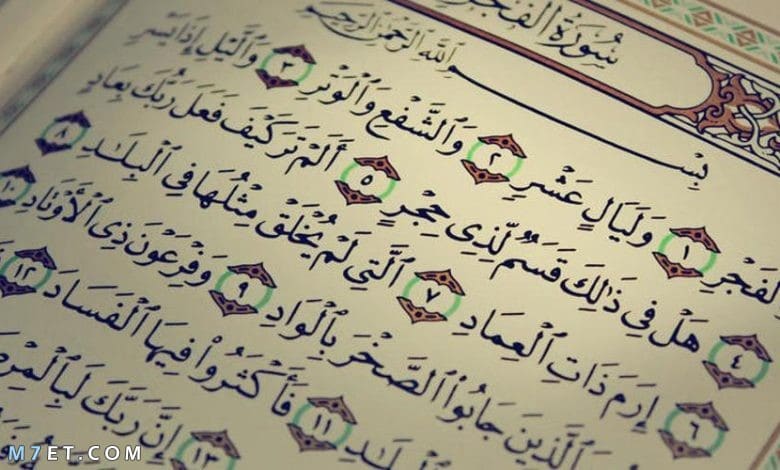 سُورَةُ الْفَجْرِ
بِسْمِ اللَّهِ الرَّحْمَٰنِ الرَّحِيمِ
لْفَجْرِ ١ وَلَيَالٍ عَشْرٍ ٢ وَٱلشَّفْعِ وَٱلْوَتْرِ ٣ وَٱلَّيْلِ إِذَا يَسْرِ
٤ هَلْ فِي ذَٰلِكَ قَسَمٌ لِّذِي حِجْرٍ ٥ أَلَمْ تَرَ كَيْفَ فَعَلَ رَبُّكَ بِعَادٍ
٦ إِرَمَ ذَاتِ ٱلْعِمَادِ ٧ ٱلَّتِي لَمْ يُخْلَقْ مِثْلُهَا فِي ٱلْبِلَٰدِ ٨
ٱلَّذِينَ جَابُوا۟ ٱلصَّخْرَ بِٱلْوَادِ ٩ وَفِرْعَوْنَ ذِي ٱلْأَوْتَادِ ١٠
١١ فَأَكْثَرُوا۟ فِيهَا ٱلْفَسَادَ ١٢
١٣ إِنَّ رَبَّكَ لَبِٱلْمِرْ
M7ET.COM